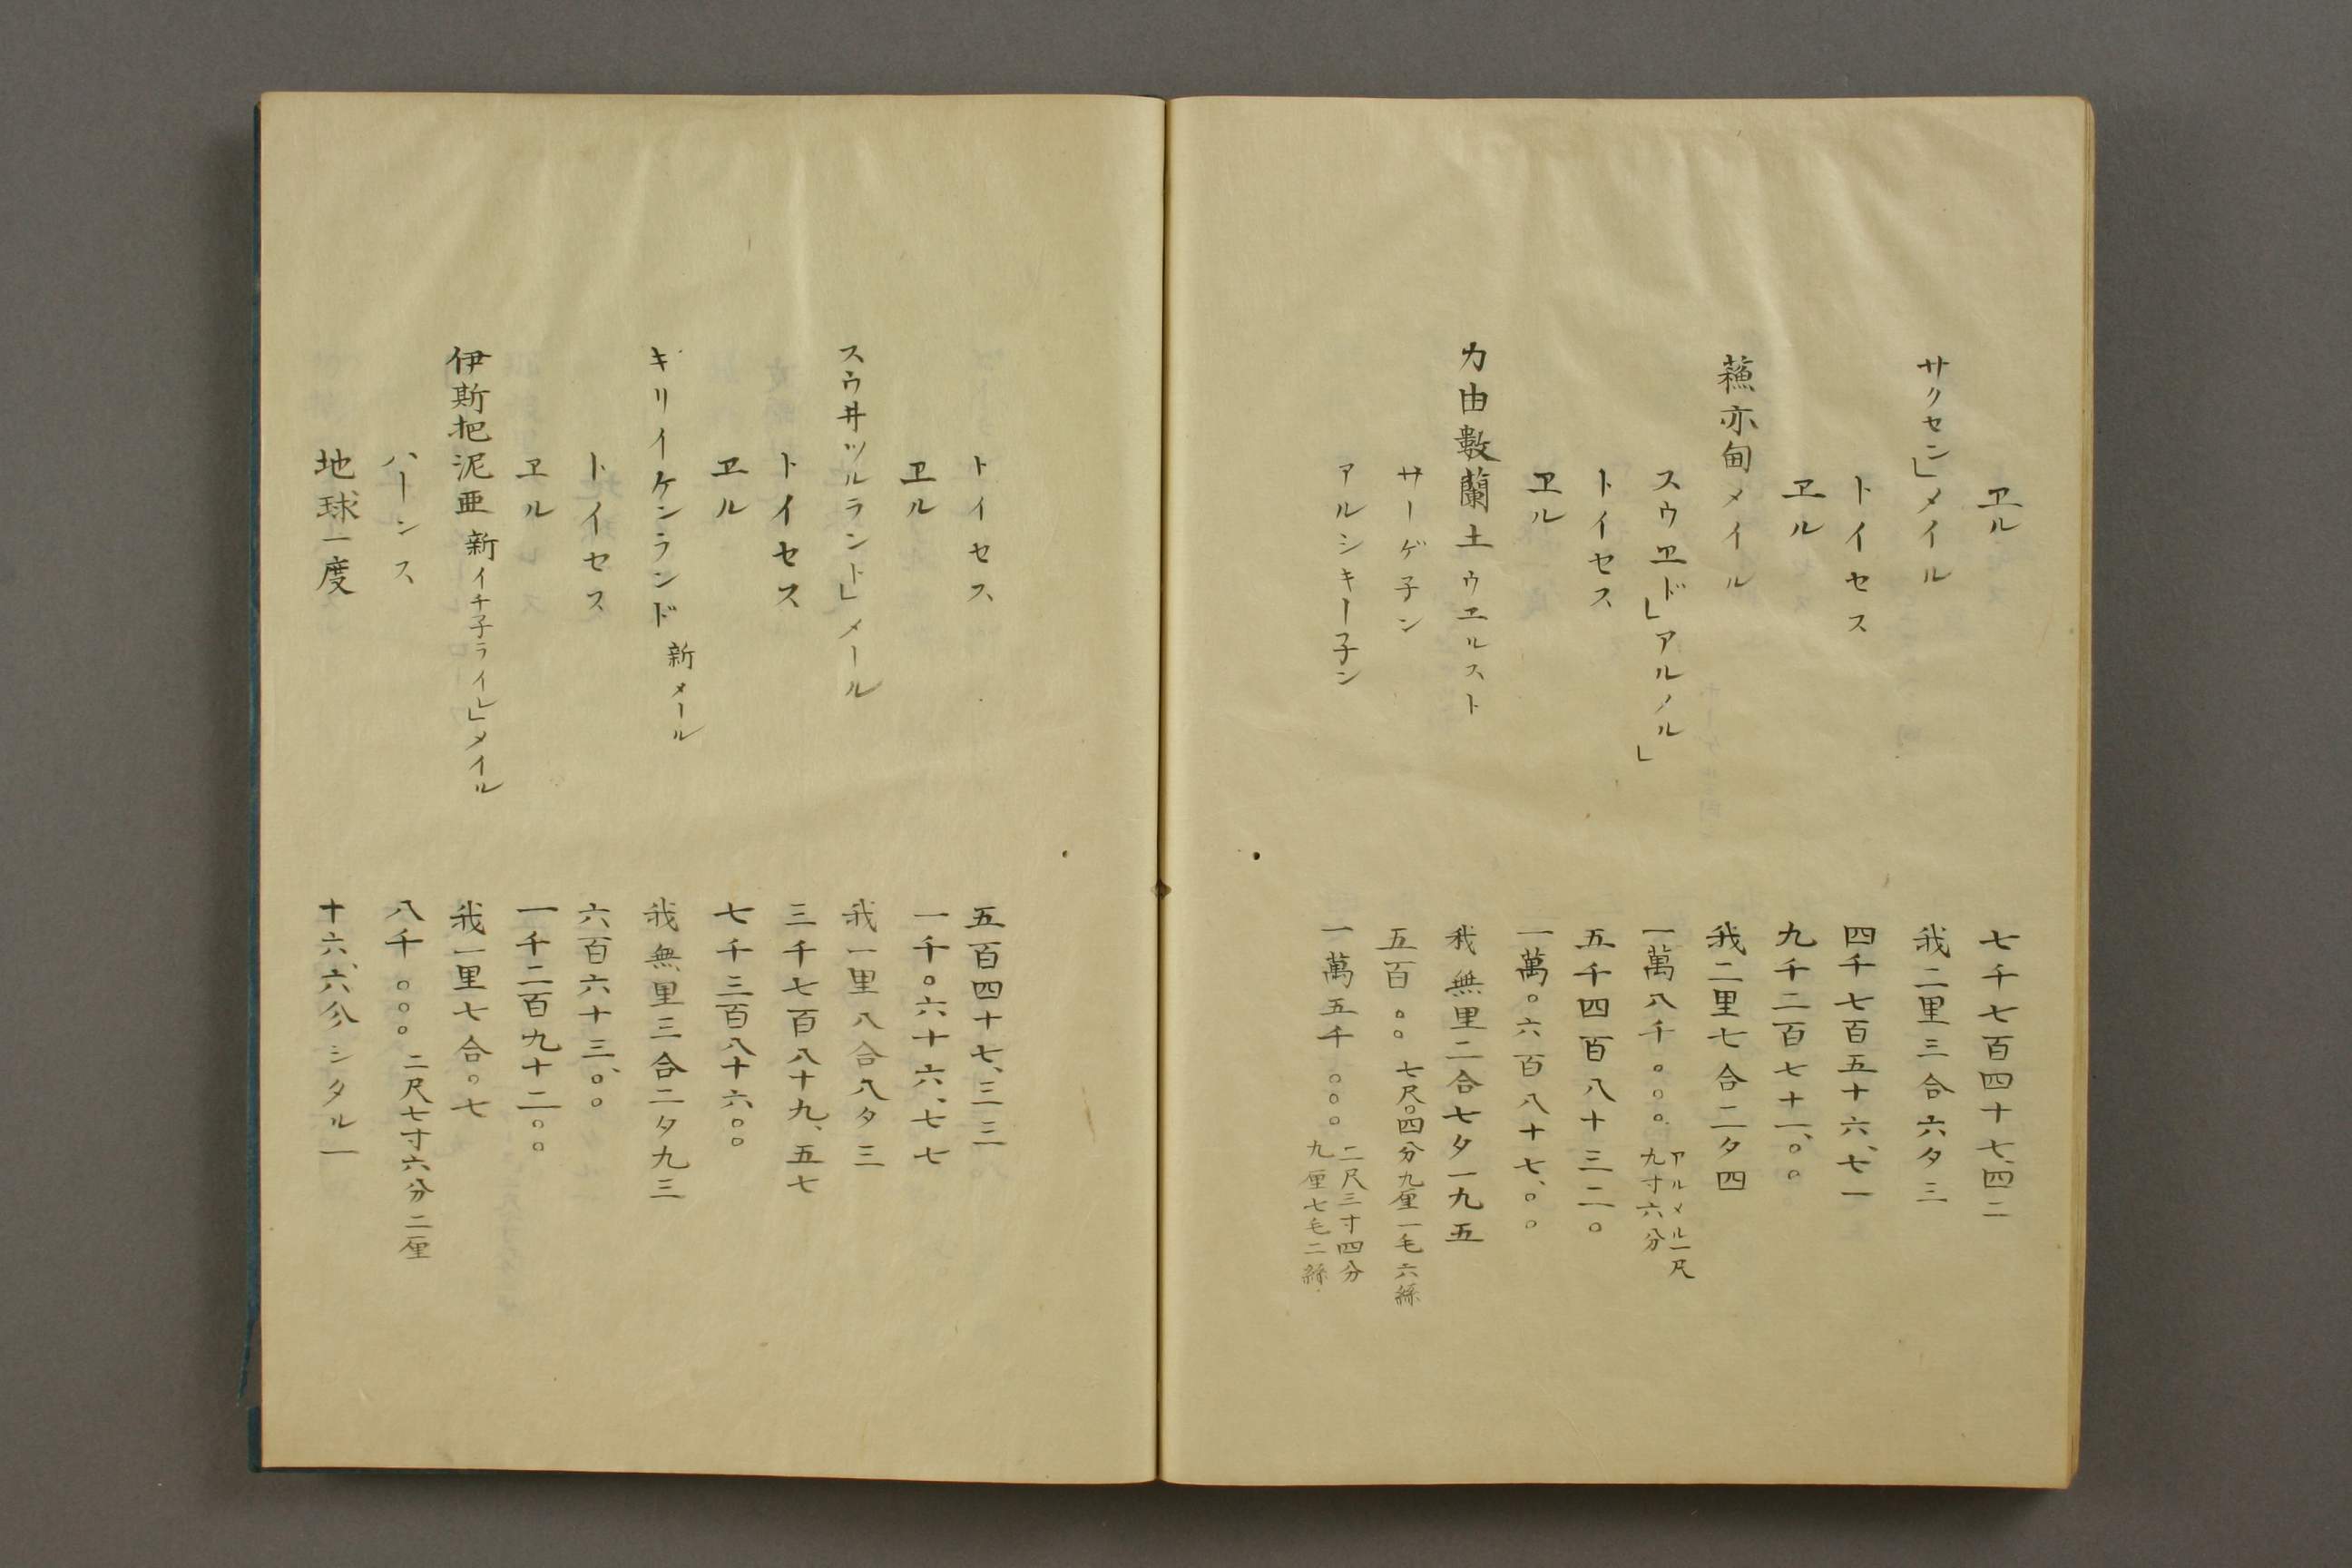 ヱル　七千七百四十七、四二
サクセン」メイル　我二里三合六夕三
トイセス　四千七百五十六、七一
ヱル　九千二百七十一、〇〇
蘓亦甸メイル　我二里七合二夕四
スウヱド」アルノル」　一萬八千〇〇〇 アルメル一尺九寸六分
トイセス　五千四百八十三二〇
ヱル　一萬〇六百八十七、〇〇
力由數蘭土ウヱルスト　我無里二合七夕一九五
サーゲ子ン　五百〇〇 七尺〇四分九厘一毛六絲
アルシキー子ン　一萬五千〇〇〇 二尺三寸四分九厘七毛二絲
トイセス　五百四十七、三三
ヱル　一千〇六十六、七七
スウ井ツルラント」メール　我一里八合八夕三
トイセス　三千七百八十九、五七
ヱル　七千三百八十六〇〇
キリイケンランド新メール　我無里三合二夕九三
トイセス　六百六十三、〇〇
ヱル　一千二百九十二〇〇
伊斯把泥亜新イチ子ライレ」メイル　我一里七合〇七
ハーンス　八千〇〇〇 二尺七寸六分二厘
地球一度　十六、六分シタル一